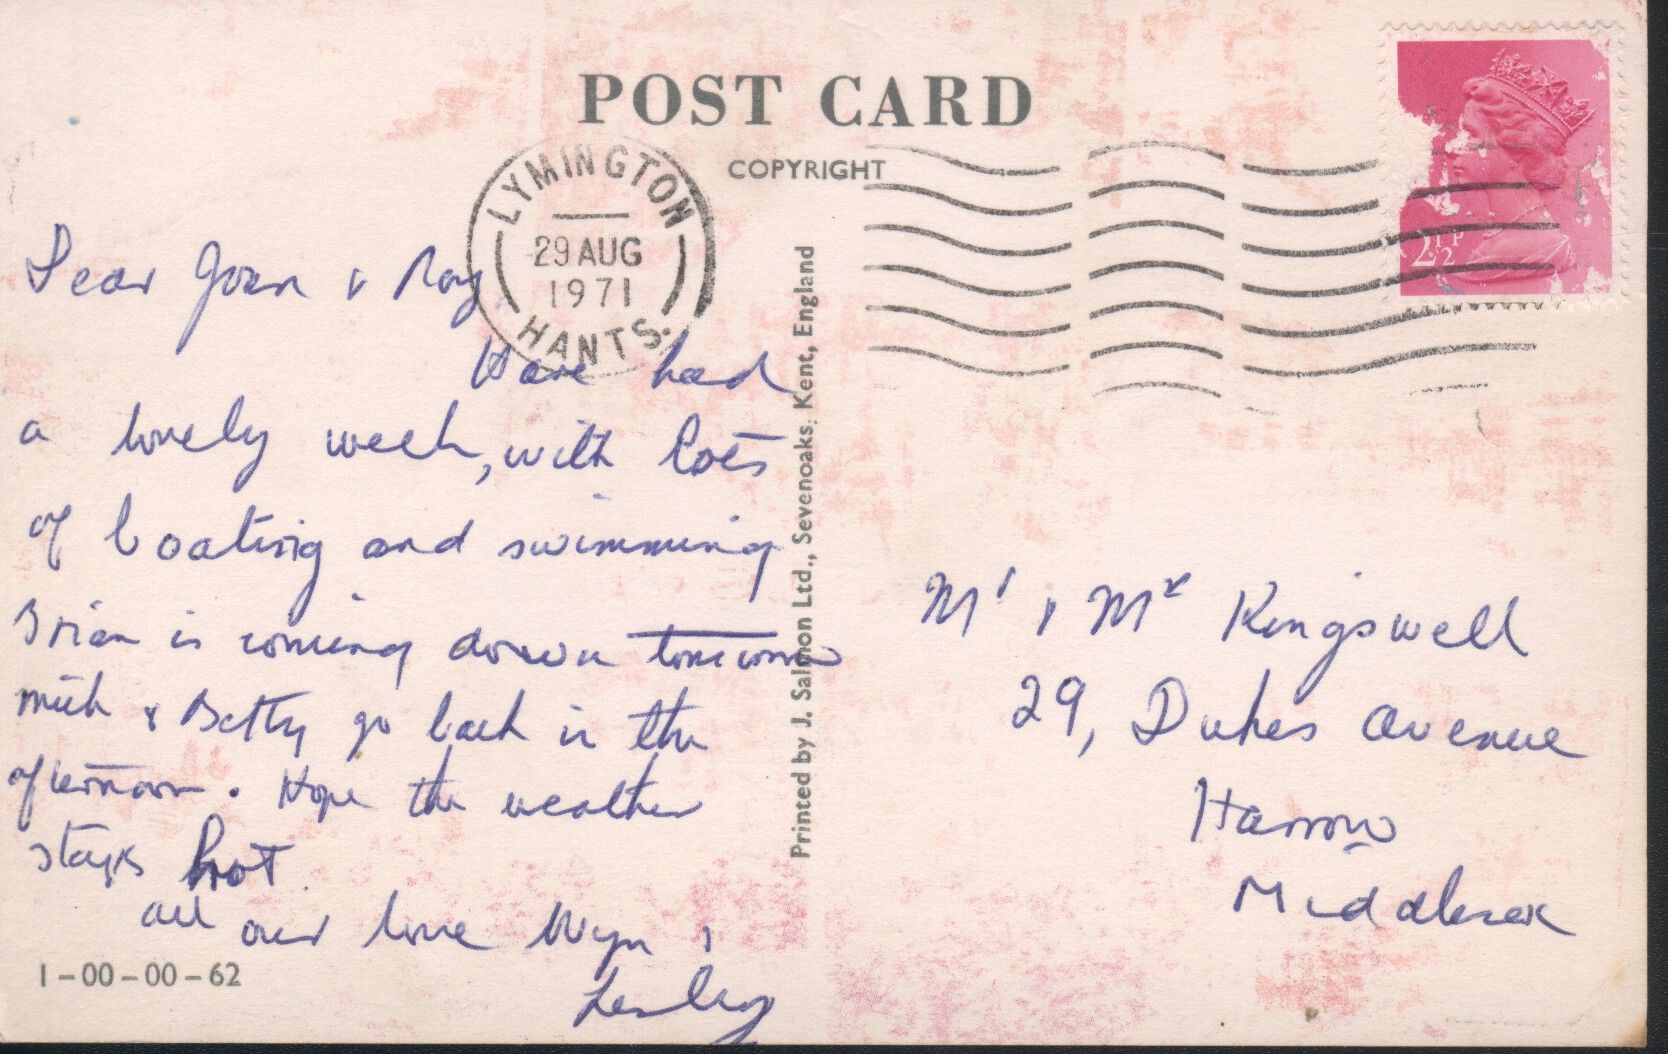 POST CARD
COPYRIGHT
LYMINGTON
29 AUG
1971
HANTS.
2½P
Dear Joan & Roy,
Have had
a lovely week, with lots
of boating and swimming
Brian is coming down
Mick & Betty go back in the
afternoon. Hope the weather
stays hot.
all our love Wyn &
Lesley
1-00-00-62
Printed by J. Salmon Ltd., Sevenoaks, Kent, England
Mr & Mrs Kingswell
29, Dukes Avenue
Harrow
Middlesex